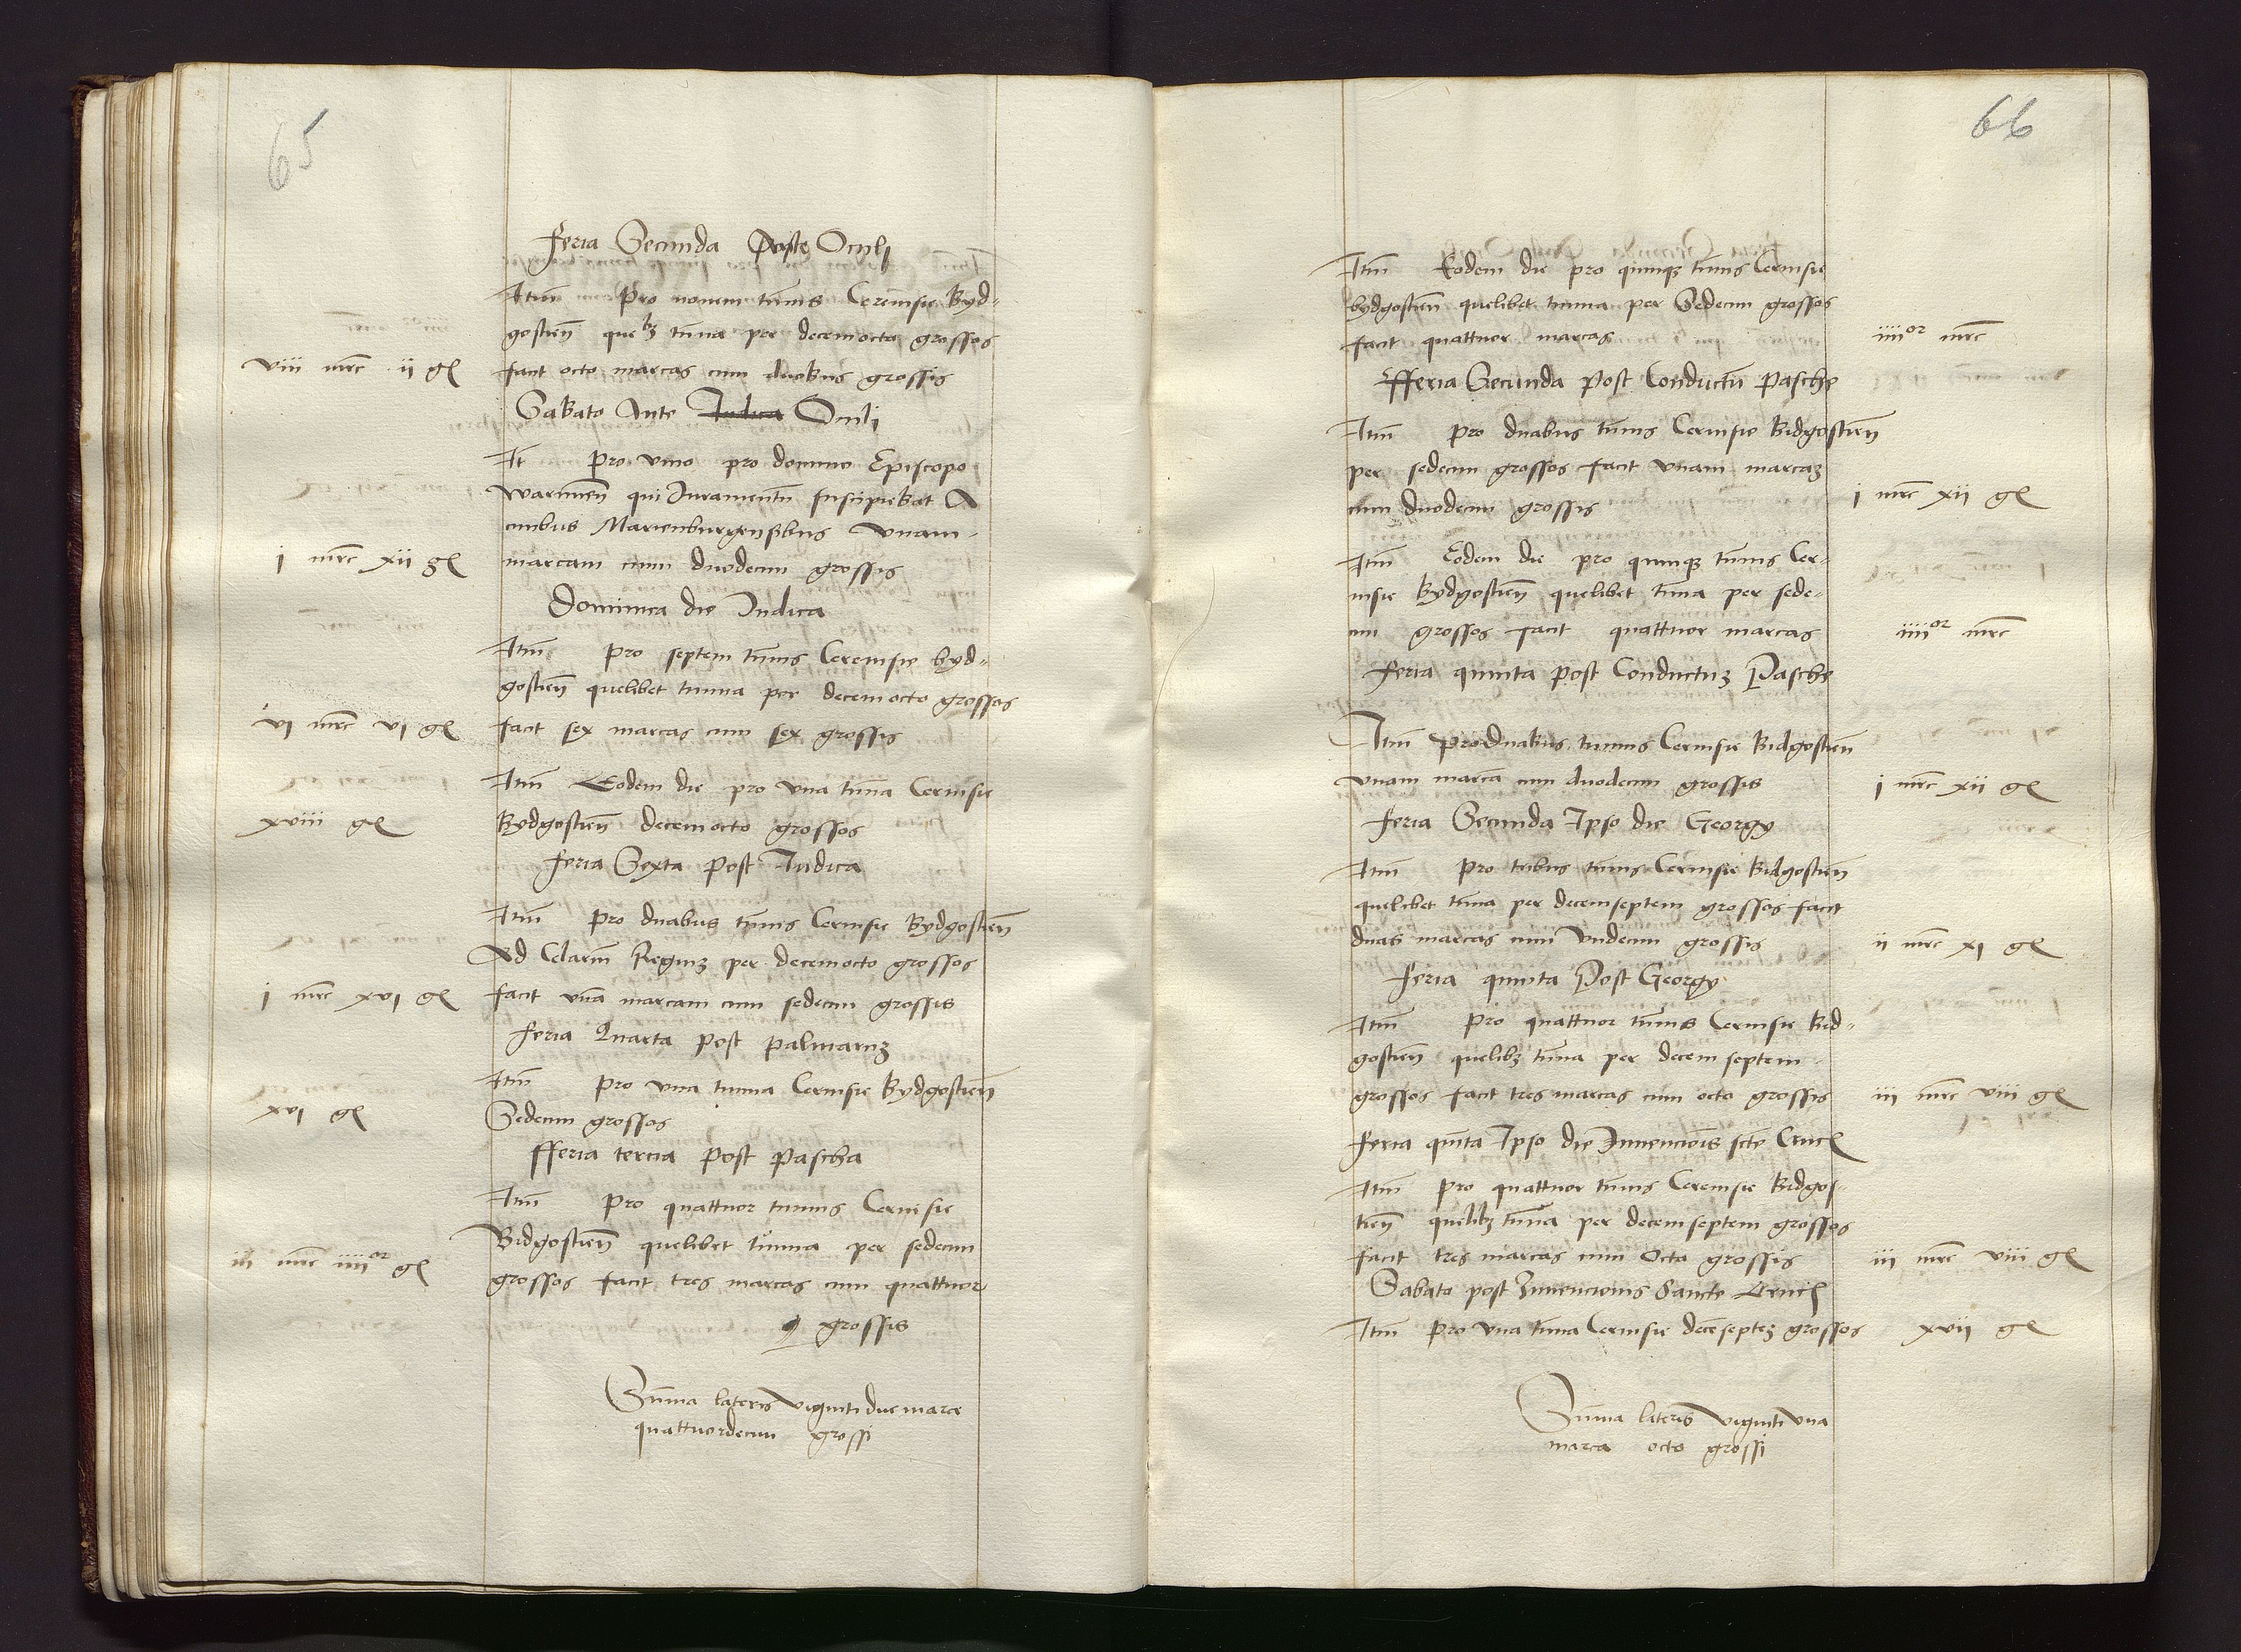 65
feria Secunda Poste Oculi
Itm̄ Pro novem tūnis Cerevisie Byd-
gostien̄ quelꝫ tūna per decemocto grossos
viii mrc ii gl facit octo marcas cum duobus grossis
Sabato Ante Judica Oculi
It pro vino pro domino Episcopo
warmien̄ qui Juramentū suscipiebat A
civibus Marienburgensibus vnam
i mrc xii gl marcam cum duodecim grossis
Dominica die Judica
Itm̄ Pro septem tūnis Cerevisie byd-
gostien̄ quelibet tunna per decemocto grossos
vi mrc vi gl facit sex marcas cum sex grossis
Itm̄ Eodem die pro vna tūna Cervisie
xviii gl Bydgostien̄ decemocto grossos
feria Sexta post Judica
Itm̄ pro duabus tūnis Cervisie Bydgostien̄
Ad Celariū Reginꝫ per decemocto grossos
i mrc xvi gl facit vnā marcam cum sedecim grossis
feria Quarta post palmarꝫ
Itm̄ pro vna tunna Cervisie Bydgostien̄
xvi gl Sedecim grossos
fferia tercia post pascha
Itm̄ pro quattuor tunnis Cervisie
Bidgostien̄ quelibet tunna per sedecim
iii mrc iiiior gl grossos facit tres marcas cum quattuor
grossis
Sūma lateris viginti due marce
quattuordecim grossi
66
Itm̄ Eodem die pro quinqꝫ tūnis Cervisie
bydgostien̄ quelibet tunna per Sedecim grossos
facit quattuor marcas iiiior mrc
fferia Secunda post Conductū pasche
Itm̄ pro duabus tūnis Cervisie Bidgostien̄
per sedecim grossos facit vnam marcaꝫ
cum duodecim grossis i mrc xii gl
Itm̄ Eodem die pro quinqꝫ tūnis Cer-
visie Bydgostien̄ quelibet tūna per sede-
cim grossos facit quattuor marcas iiiior mrc
feria quinta post Conductuꝫ Pasche
Itm̄ pro duabus tunnis Cervisie Bidgostien̄
vnam marcā cum duodecim grossis i mrc xii gl
feria Secunda Ipso die Georgy
Itm̄ pro tribus tūnis Cervisie Bidgostien̄
quelibet tūna per decemseptem grossos facit
duas marcas cum vndecim grossis ii mrc xi gl
feria quinta Post Georgy
Itm̄ pro quattuor tūnis Cervisie Bid-
gostien̄ quelibꝫ tūna per decem septem
grossos facit tres marcas cum octo grossis iii mrc viii gl
feria quīta Ipso die Invencōis scte Crucl
Itm̄ pro quattuor tūnis Cerevisie Bidgos-
tien̄ quelibꝫ tūna per decemseptem grossos
facit tres marcas cum Octo grossis iii mrc viii gl
Sabato post Invencionis Sancte Crucl
Itm̄ pro vna tūna Cervisie decēsepteꝫ grossos xvii gl
Sūma lateris viginti vna
marca octo grossi